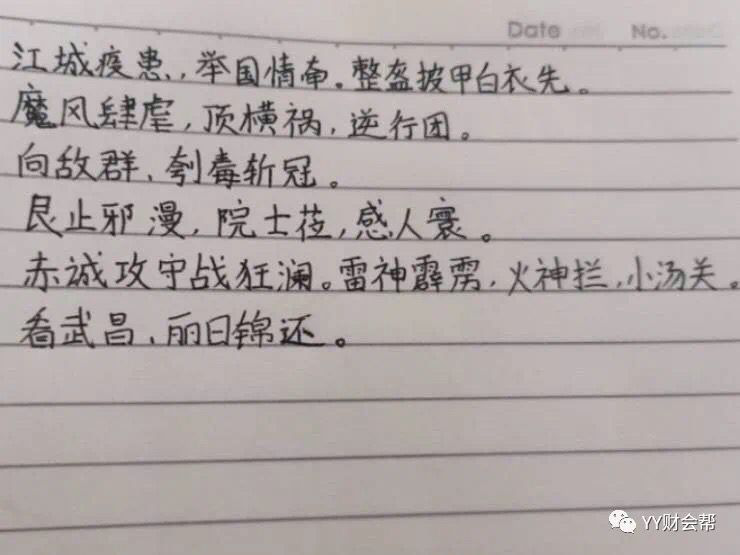 Date No.
江城疫患,,举国情奋。整盔披甲白衣先。
魔风肆虐,顶横祸,逆行团。
向敌群、刳毒斩冠。
艮止邪漫,院士莅,感人寰。
赤诚攻守战狂澜。雷神霹雳,火神拦,小汤关。
看武昌、丽日锦还。
YY财会帮